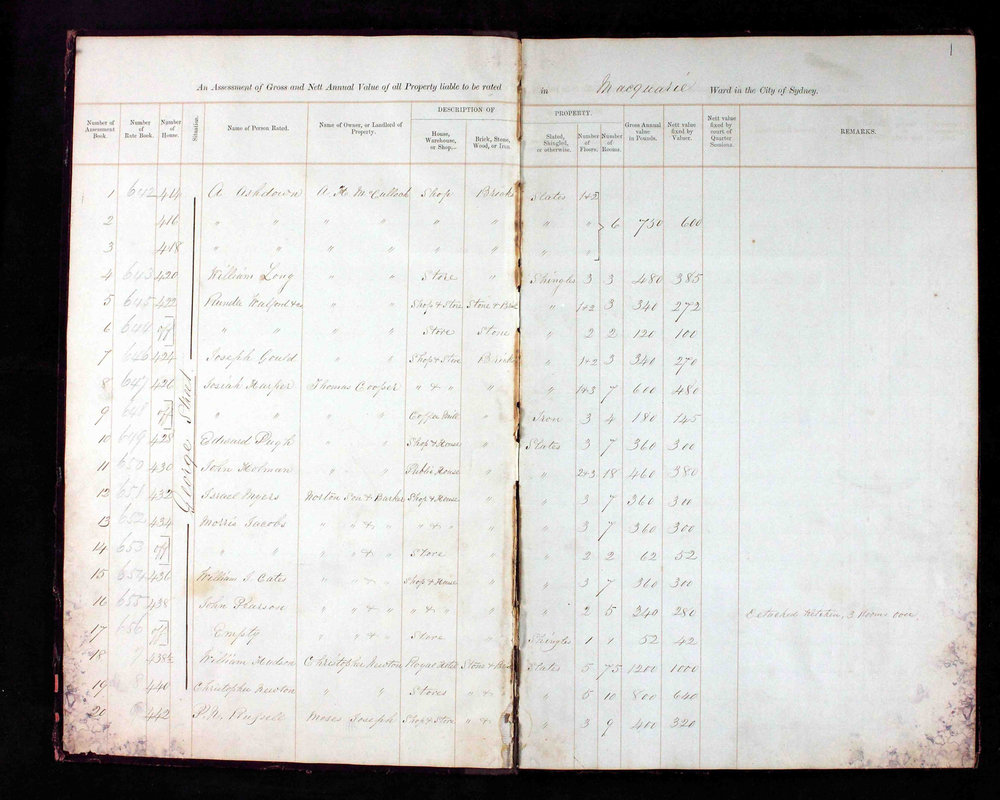 1
An Assessment of Gross and Nett Annual Value of all Property liable to be rated in Macquarie Ward in the City of Sydney.
DESCRIPTION OF PROPERTY.
Number of Assessment Book. Number of Rate Book. Number of House. Situation. Name of Person Rated. Name of Owner, or Landlord of Property. House, Warehouse, or Shop,— Brick, Stone, Wood, or Iron. Slated, Shingled, or otherwise. Number of Floors. Number of Rooms. Gross Annual value in Pounds. Nett value fixed by Valuer. Nett value fixed by court of Quarter Sessions. REMARKS.
George Street
1 642 414 A Ashdown A. H. McCulloch Shop Brick Slates 1+2
2 416 " " " " " " " " 6 750 600
3 418 " " " " " " " "
4 643 420 William Long " " Store " Shingles 3 3 480 385
5 645 422 Walford & Co " " Shop & Store Stone & Brick " 1+2 3 340 272
6 644 off " " " " Store Stone " 2 2 120 100
7 646 424 Joseph Gould " " Shop & Store Brick " 1+2 3 340 270
8 647 426 Josiah Harper Thomas Cooper " & " " " 1+3 7 600 480
9 648 off " " " " Coffee Mill " Iron 3 4 180 145
10 649 428 Edward Pugh " " Shop & House " Slates 3 7 360 300
11 650 430 John Holman " " Public House " " 2+3 18 460 380
12 651 432 Israel Myers Norton Son & Barker Shop & House " " 3 7 360 300
13 652 434 Morris Jacobs " " & " " & " " " 3 7 360 300
14 653 off " " " " & " Store " " 2 2 62 52
15 654 436 William J. Cates " " & " Shop & House " " 3 7 360 300
16 655 438 John Pearson " " & " " & " " " 2 5 340 280 Detached Kitchen, 3 Rooms over
17 656 off Empty " " & " Store " Shingles 1 1 52 42
18 7 438½ William Hudson Christopher Newton Royal Hotel Stone & Brick Slates 5 75 1200 1000
19 8 440 Christopher Newton " " Stores " & " " 5 10 800 640
20 442 Moses Joseph Shop & Store " & " " 3 9 400 320